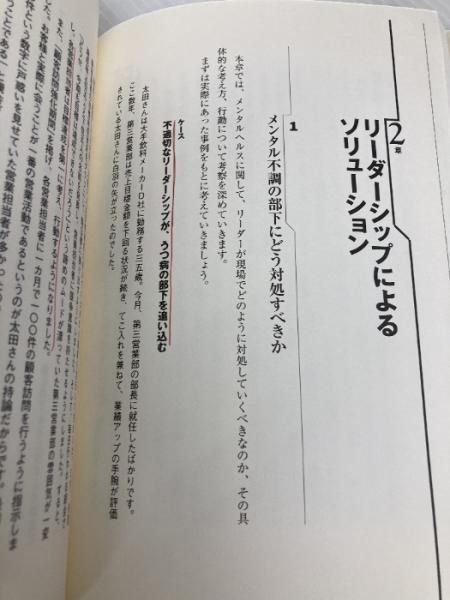 2章
リーダーシップによる
ソリューション
1
メンタル不調の部下にどう対処すべきか
本章では、メンタルヘルスに関して、リーダーが現場でどのように対処していくべきなのか、その具
体的な考え方、行動について考察を深めていきます。
まずは実際にあった事例をもとに考えていきましょう。
ケース
不適切なリーダーシップが、うつ病の部下を追い込む
太田さんは大手飲料メーカーD社に勤務する三五歳。今月、第三営業部の部長に就任したばかりです。
ここ数年、第三営業部は売上目標金額を下回る状況が続き、てこ入れを兼ねて、業績アップの手腕が評価
されている太田さんに白羽の矢が立ったのでした。
という諦めのムードが漂っていた第三営業部の雰囲気が一変
に考え、行動するようになりました。
また、「顧客訪問強化期間」を掲げ、各営業担当者に一カ月で一〇〇件の顧客訪問を行うように指示しま
した。お客様と実際に会うことが一番の営業活動であるというのが太田さんの持論だからです。
件という数字に戸惑いを見せていた営業担当者が多かった